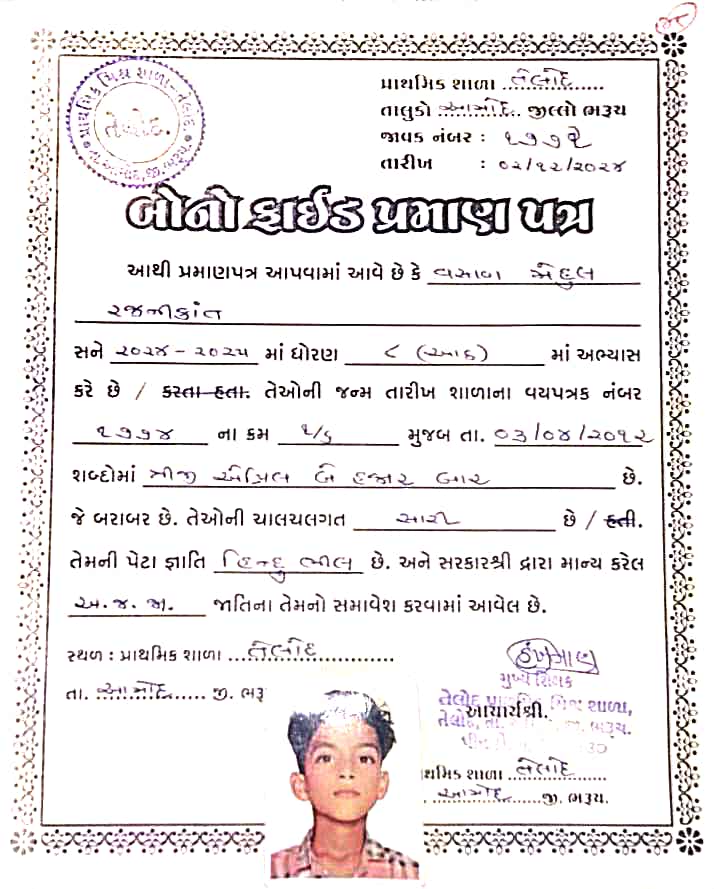 પ્રાથમિક મિશ્ર શાળા-તેલોદ
તેલોદ.
પ્રાથમિક શાળા તેલોદ
તાલુકો આમોદ. જીલ્લો ભરૂચ
જાવક નંબર : ૧૭૭૨
તારીખ : ૦૨/૧૨/૨૦૨૪
બોનો ફાઈડ પ્રમાણ પત્ર
આથી પ્રમાણપત્ર આપવામાં આવે છે કે વસાવા
રજનીકાંત
સને ૨૦૨૪-૨૦૨૫ માં ધોરણ ૮ (આઠ) માં અભ્યાસ
કરે છે / કરતા હતા. તેઓની જન્મ તારીખ શાળાના વયપત્રક નંબર
૧૭૭૪ ના કમ ૧/૬ મુજબ તા. ૦૩/૦૪/૨૦૧૨
શબ્દોમાં ત્રીજી એપ્રિલ બે હજાર બાર છે.
જે બરાબર છે. તેઓની ચાલચલગત સારી છે / હતી.
તેમની પેટા જ્ઞાતિ હિન્દુ ભીલ છે. અને સરકારશ્રી દ્વારા માન્ય કરેલ
અ.જ.જા. જાતિના તેમનો સમાવેશ કરવામાં આવેલ છે.
સ્થળ : પ્રાથમિક શાળા તેલોદ
તા. આમોદ જી. ભરૂ
મુખ્ય શિક્ષક
તેલોદ પ્રાથમિક મિશ્ર શાળા,
આચાર્યશ્રી.
તેલોદ, તા. જી. ભરૂચ.
થમિક શાળા તેલોદ
આમોદ જી. ભરૂચ.